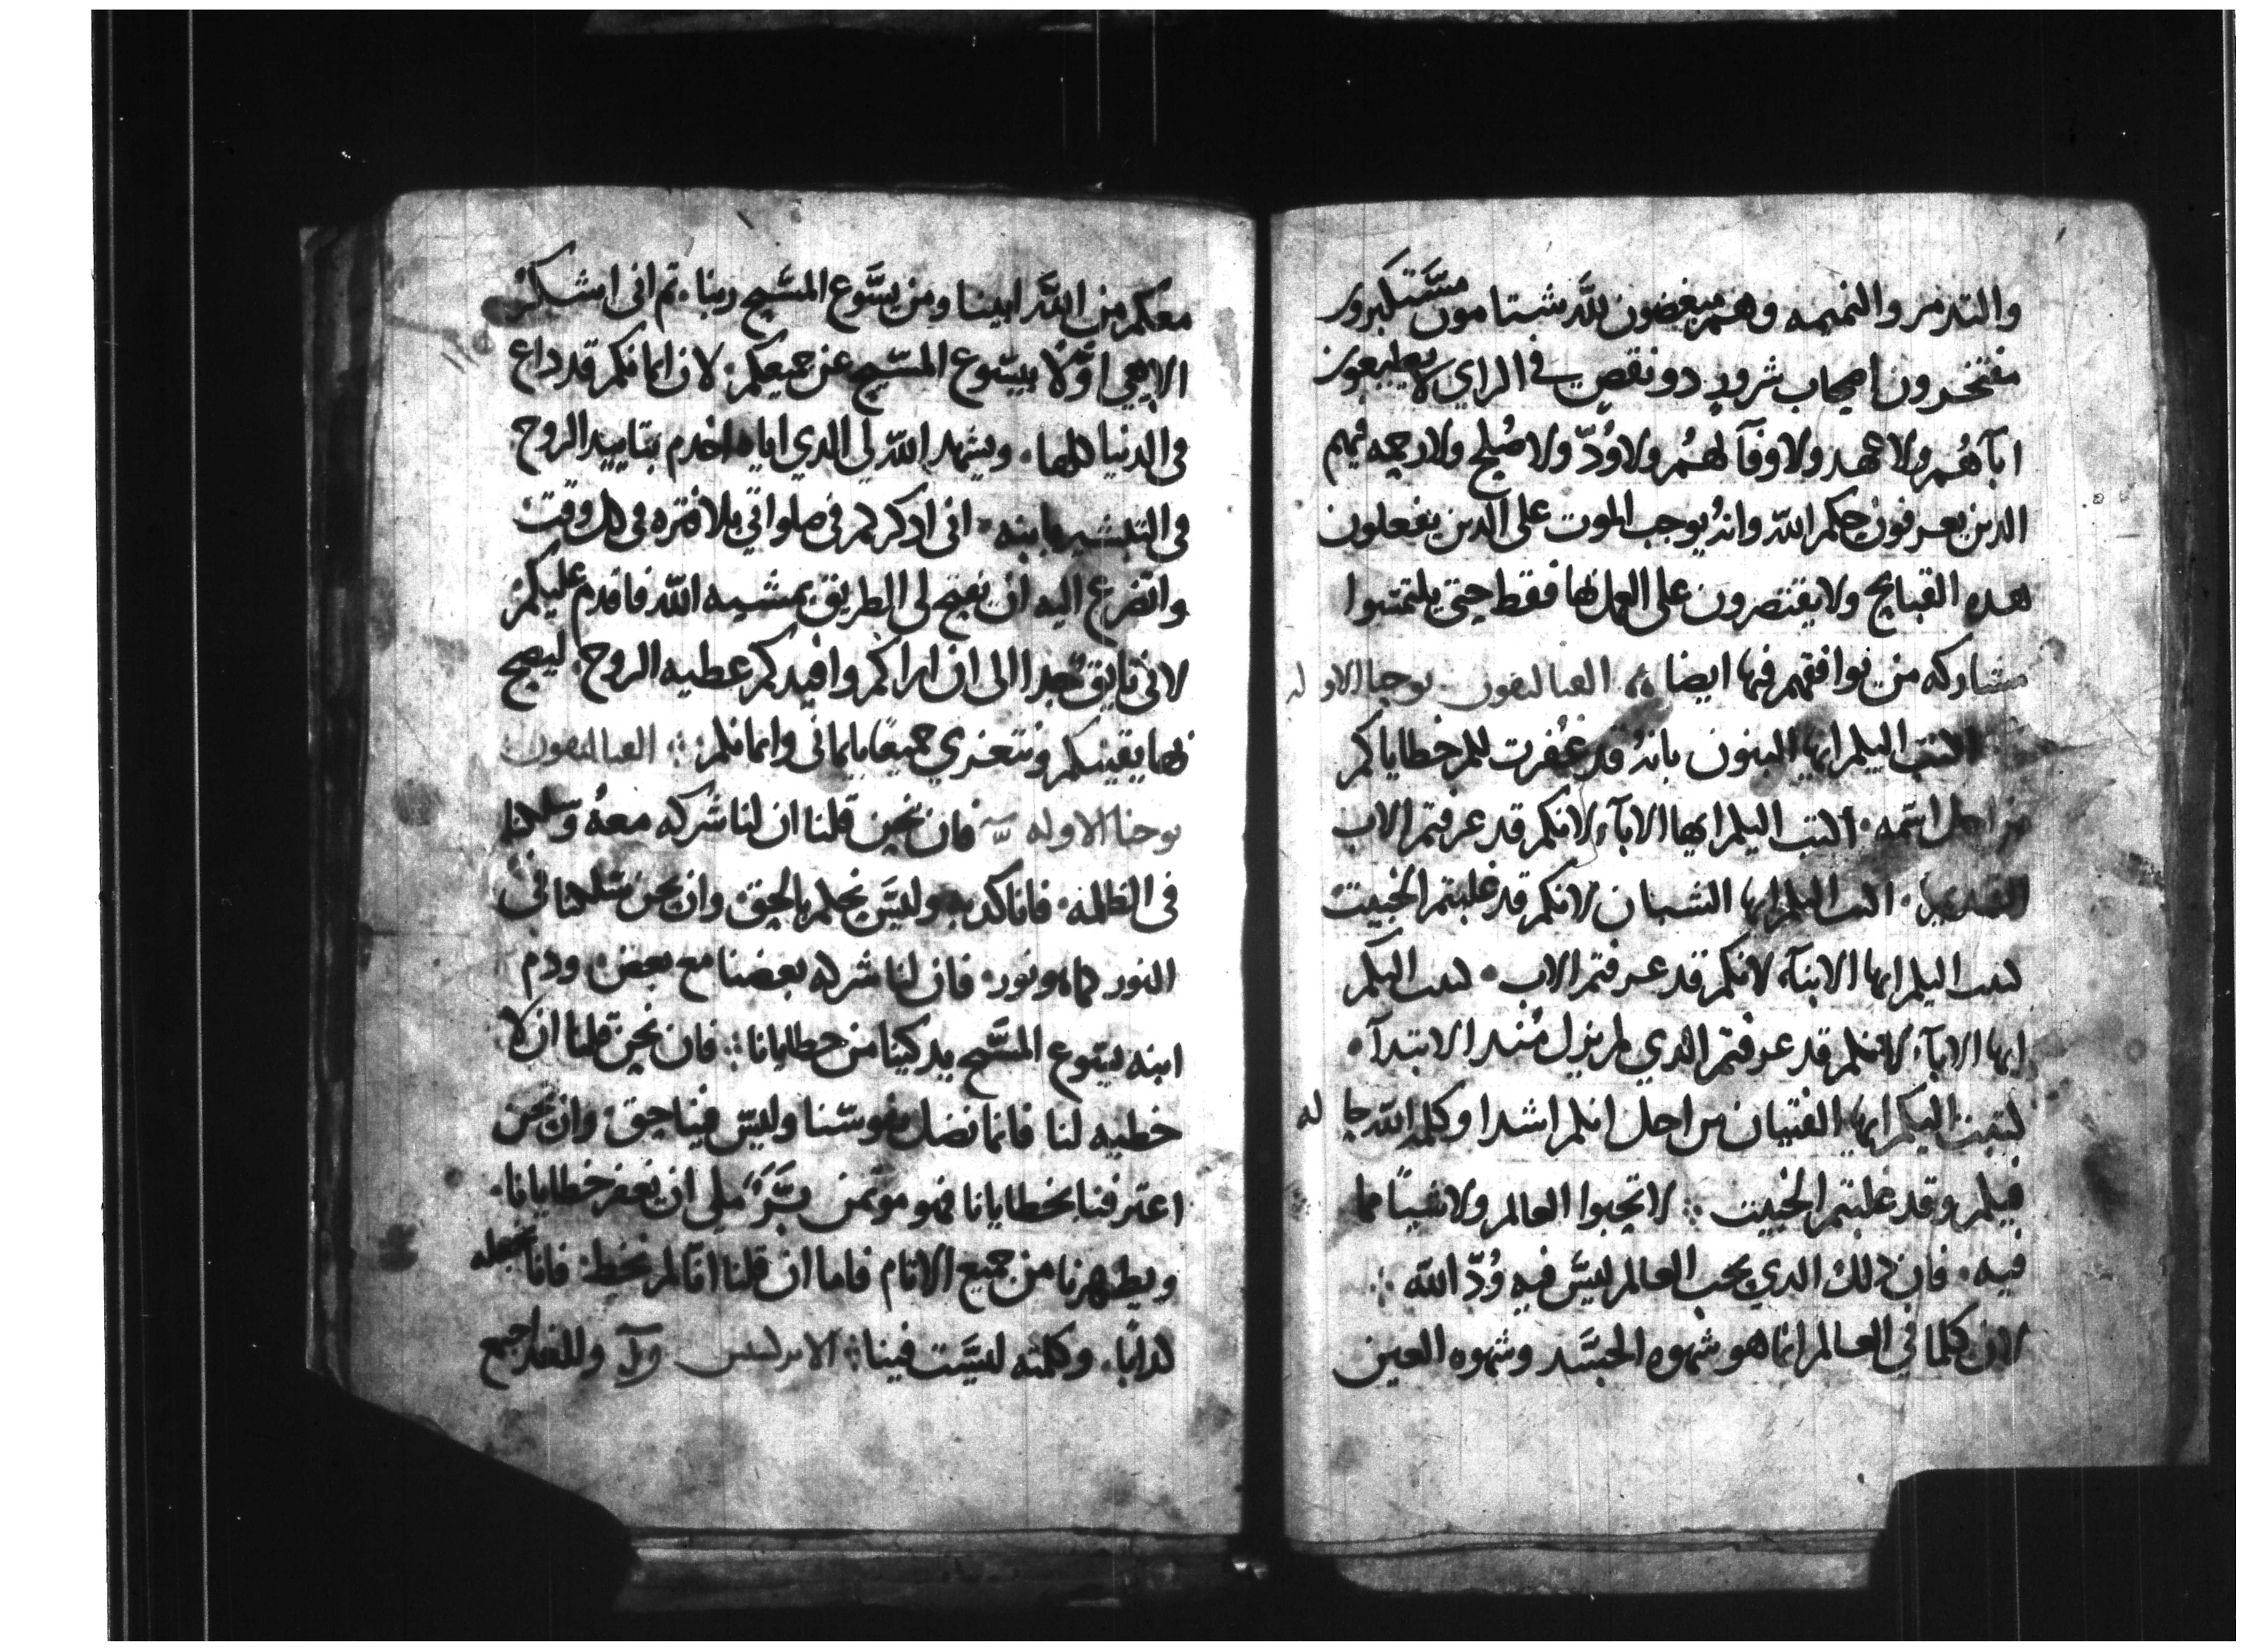 والتدمر والنميمه وهم مبغضون لله شتامون مستكبرون
مفتخرون اصحاب شرور دو نقص في الراي لا يطيعون
ابآهم ولا عهد ولا وفآ لهم ولا ودّ ولا صلح ولا رحمه فيهم
الدين يعرفون حكم الله وانه يوجب الموت على الدين يفعلون
هده القبايح ولا يقتصرون على العمل بها فقط حتى يلتمسوا
مشاركه من يوافقهم فيها ايضا ∴ القتاليقون يوحنا الاوله
اكتب اليكم ايها البنون بانه قد غفرت لكم خطاياكم
من اجل اسمه. اكتب اليكم ايها الابآء لانكم قد عرفتم الاب
القديم. اكتب اليكم ايها الشبان لانكم قد غلبتم الخبيت
كتبت اليكم ايها الابنآء لانكم قد عرفتم الاب. كتبت اليكم
ايها الابآء لانكم قد عرفتم الذي لم يزل مند الابتدآء.
كتبت اليكم ايها الفتيان من اجل انكم اشدا وكلمه الله حاله
فيكم وقد غلبتم الخبيت ∴ لا تحبوا العالم ولا شياً مما
فيه. فان ذلك الدي يحب العالم ليس فيه وُدّ الله ∴
لان كلما في العالم انما هو شهوه الجسد وشهوه العين
معكم من الله ابينا ومن يسوع المسيح ربنا. تم انى اشكر
الاهي اوّلاً بيسوع المسيح عن جميعكم. لان ايمانكم قد داع
فى الدنيا كلها. ويشهد الله لي الدي اياه اخدم بتاييد الروح
فى التبشير بابنه. انى ادكركم فى صلواتي بلا فتره فى كل وقت
واتضرع اليه ان يفتح لى الطريق بمشيه الله فاقدم عليكم
لانى تايق جدا الى ان اراكم وافيدكم عطيه الروح. ليصح
بها يقينكم ونتعزي جميعاً بايمانى وايمانكم ∴ القتاليقون
يوحنا الاوله فان نحن قلنا ان لنا شركه معه وسلكنا
فى الظلمه. فانا كدبه وليس نحكم بالحق وان نحن سلكنا فى
النور كما هو نور. فان لنا شركه بعضنا مع بعض. ودم
ابنه يسوع المسيح يدكينا من خطايانا ∴ فان نحن قلنا ان لا
خطيه لنا فانما نضل نفوسنا وليس فينا حق. وان نحن
اعترفنا بخطايانا فهو موتمن بَرّ ملى ان يغفر خطايانا.
ويطهرنا من جميع الاتام فاما ان قلنا انا لم نخط. فانا نجعله
كداباً. وكلمته ليست فينا ∴ الابركسيس وللغد اجمع